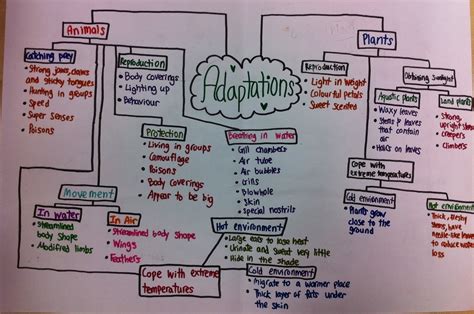 Adaptations
Animals
Catching prey
• Strong jaws, claws
and sticky tongues
• Hunting in groups
• Speed
• Super Senses
• Poisons
Reproduction
• Body coverings
• Lighting up
• Behaviour
Protection
• Living in groups
• Camouflage
• Poisons
• Body coverings
• Appear to be big
Breathing in water
• Gill chambers
• Air tube
• Air bubbles
• Gills
• Blowhole
• Skin
• Special nostrils
Movement
In water
• Streamlined
body Shape
• Modified limbs
In Air
• Streamlined body Shape
• Wings
• Feathers
Cope with extreme
temperatures
Hot environment
• Large ears to lose heat
• Urinate and sweat very little
• Hide in the shade
Cold environment
• Migrate to a warmer place
• Thick layer of fats under
the skin
Plants
Reproduction
• Light in weight
• Colourful petals
• Sweet scented
Obtaining sunlight
Aquatic plants
• Waxy leaves
• Stems & leaves
that contain
air
• Hairs on leaves
Land plants
• Strong,
upright stems
• Creepers
• Climbers
Cope with
extreme temperatures
Cold environment
• Plants grow
close to the
ground
Hot environment
• Thick, fleshy
stems, have
needle-like leaves
to reduce water
loss